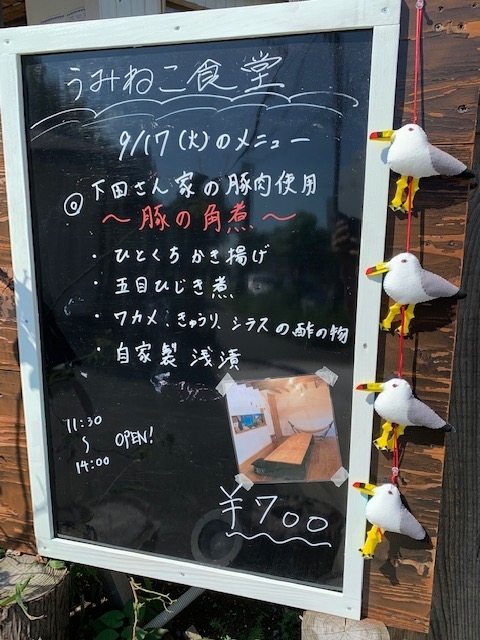 うみねこ食堂
9/17(火)のメニュー
◎下田さん家の豚肉使用
～豚の角煮～
・ひとくちかき揚げ
・五目ひじき煮
・ワカメ、きゅうり、シラスの酢の物
・自家製浅漬
11:30
～ OPEN!
14:00
¥700